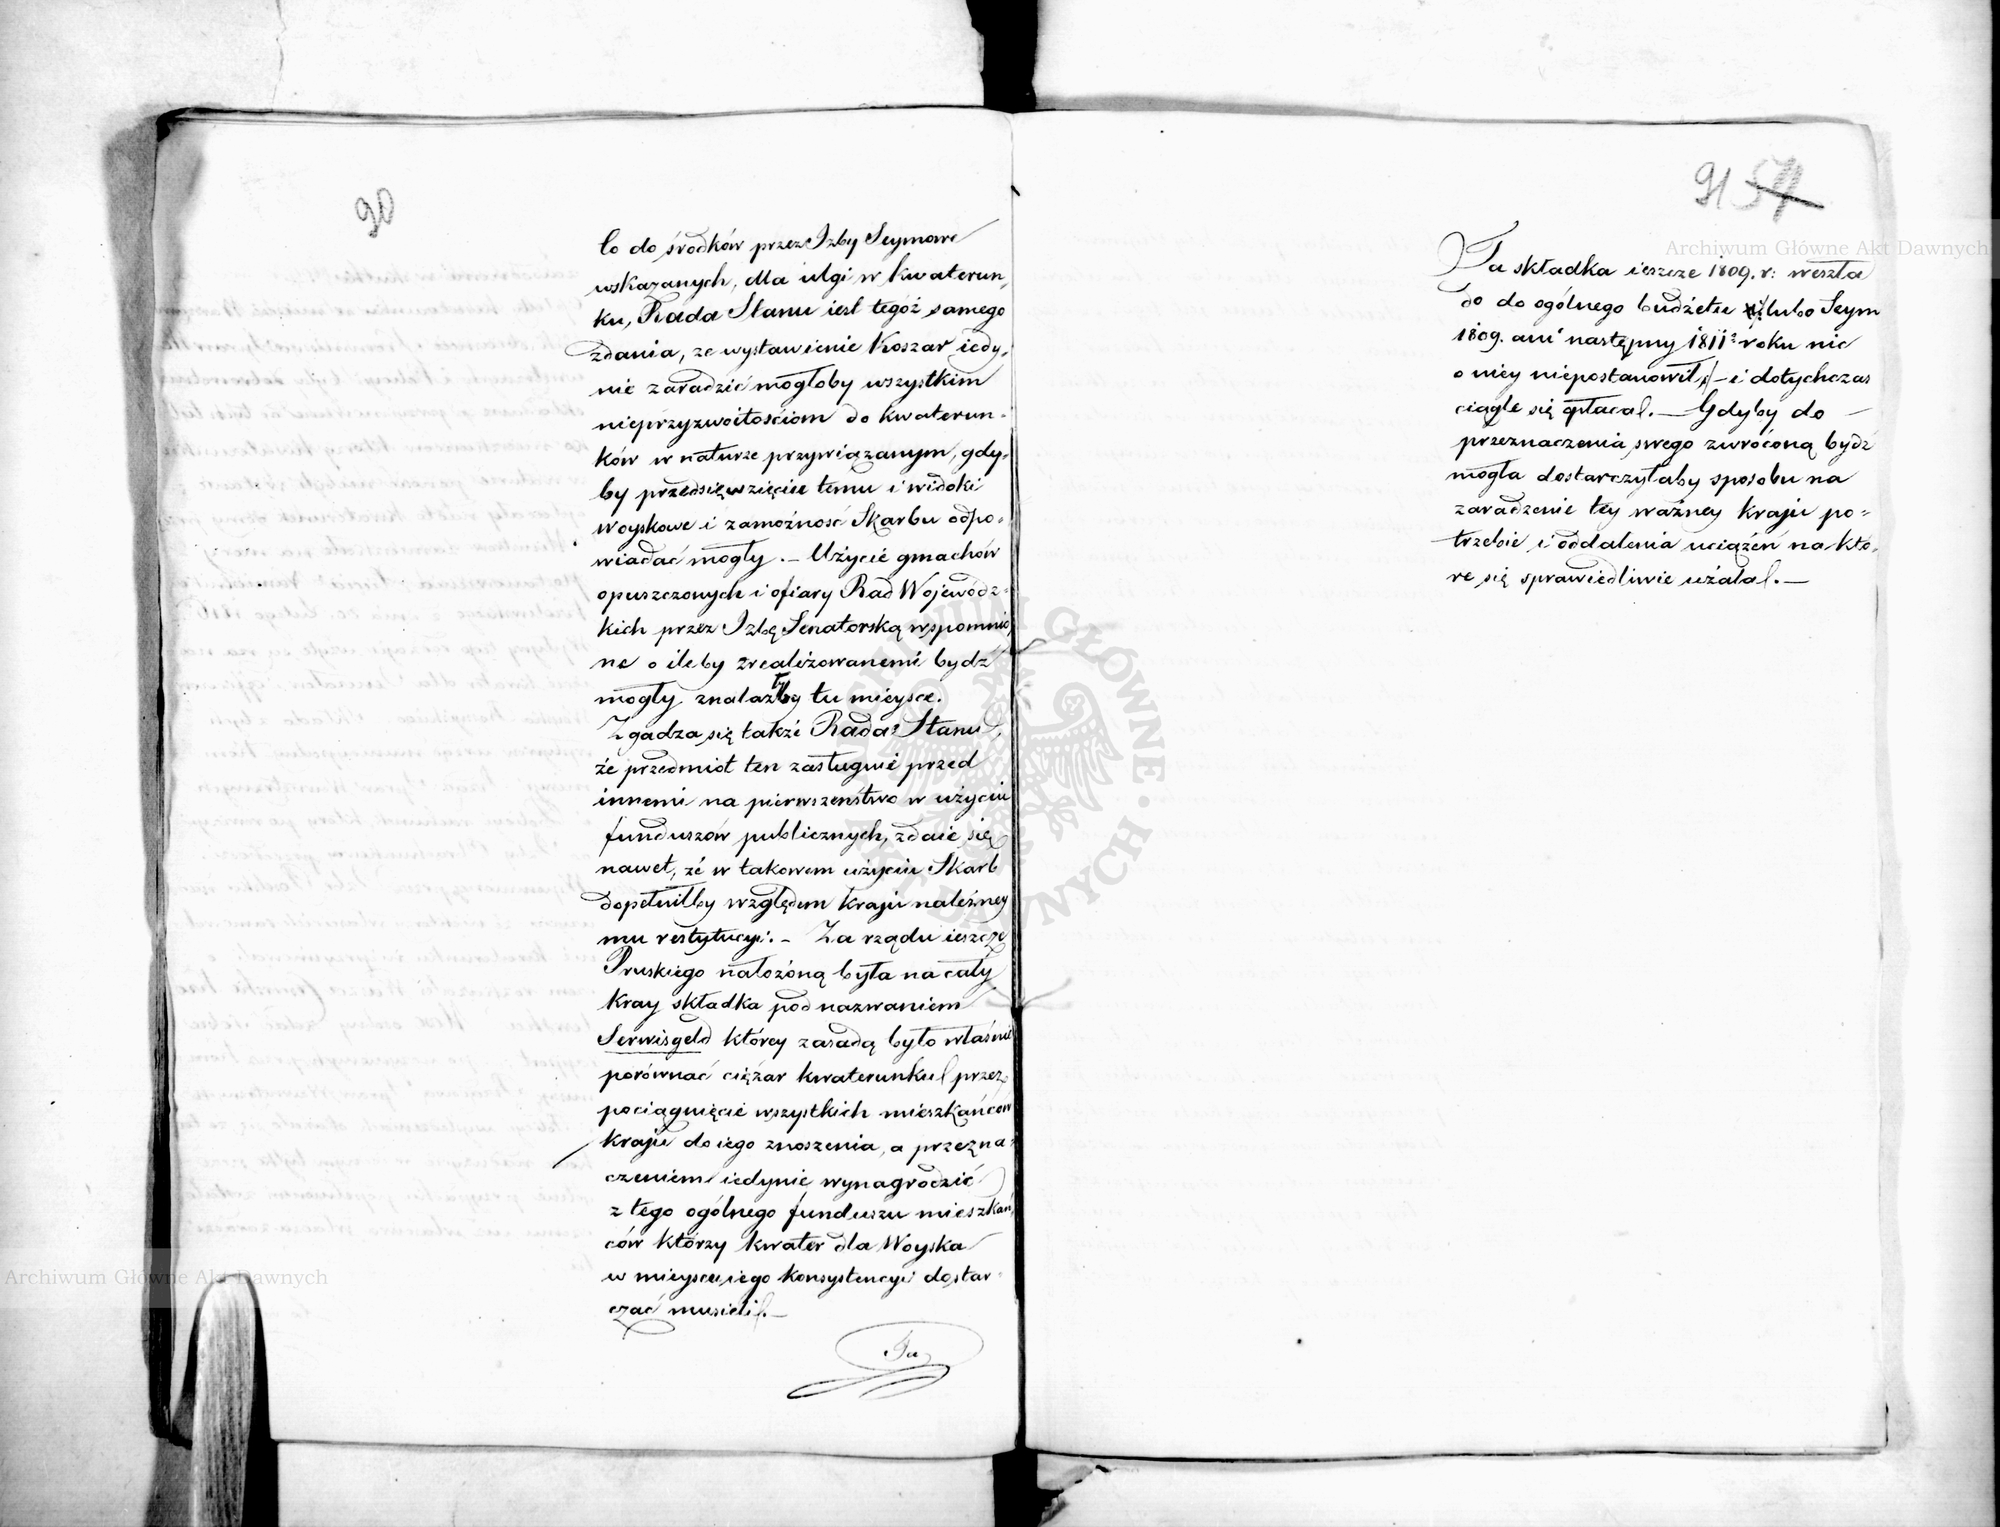 90
Co do środków przez Izby Seymowe
wskazanych, dla ulgi w kwaterun,
ku, Rada Stanu iest tegóż samego
zdania, ze wystawienie Koszar iedy,
nie zaradzić mogłoby wszystkim
nieprzyzwoitościom do kwaterun-
ków w naturze przywiązanym, gdy,
by przedsięwzięciu temu i widoki
Woyskowe i zamożność Skarbu odpo-
wiadać mogły. – Użycie gmachów
opuszczonych i ofiary Rad Wojewódz-
kich przez Izbę Senatorską wspomnio,
ne o ileby zrealizowanemi bydź
mogły znalazłyby tu mieysce.
Zgadza się także Rada Stanu,
że przedmiot ten zasługuie przed
innemi na pierwszeństwo w użyciu
funduszów publicznych, zdaie się
nawet, że w takowem użyciu Skarb
dopełniłby względem kraju należney
mu restytucyi. – Za rządu ieszcze
Pruskiego nałożoną była na cały
kray składka pod nazwaniem
Serwisgeld którey zasadą było właśnie
porównać ciężar kwaterunku przez
pociągnięcie wszystkich mieszkańców
kraju do iego znoszenia, a przezna-
czeniem iedynie wynagrodzić
z tego ogólnego funduszu mieszkań,
ców którzy kwater dla Woyska
w mieyscu iego konsystencyi dostar-
czać musieli. –
Ta
91 57
Ta składka ieszcze 1809. r: weszła
do do ogólnego budżetu lubo Seym
1809. ani następny 1811: roku nic
o niey niepostanowił, – i dotychczas
ciągle się opłaca. – Gdyby do
przeznaczenia swego zwróconą bydź
mogła dostarczyłaby sposobu na
zaradzenie tey ważney kraju po-
trzebie i oddalenia uciążeń na któ-
re się sprawiedliwie użala. –
Archiwum Główne Akt Dawnych
Archiwum Główne Akt Dawnych
ARCHIWUM GŁÓWNE AKT DAWNYCH